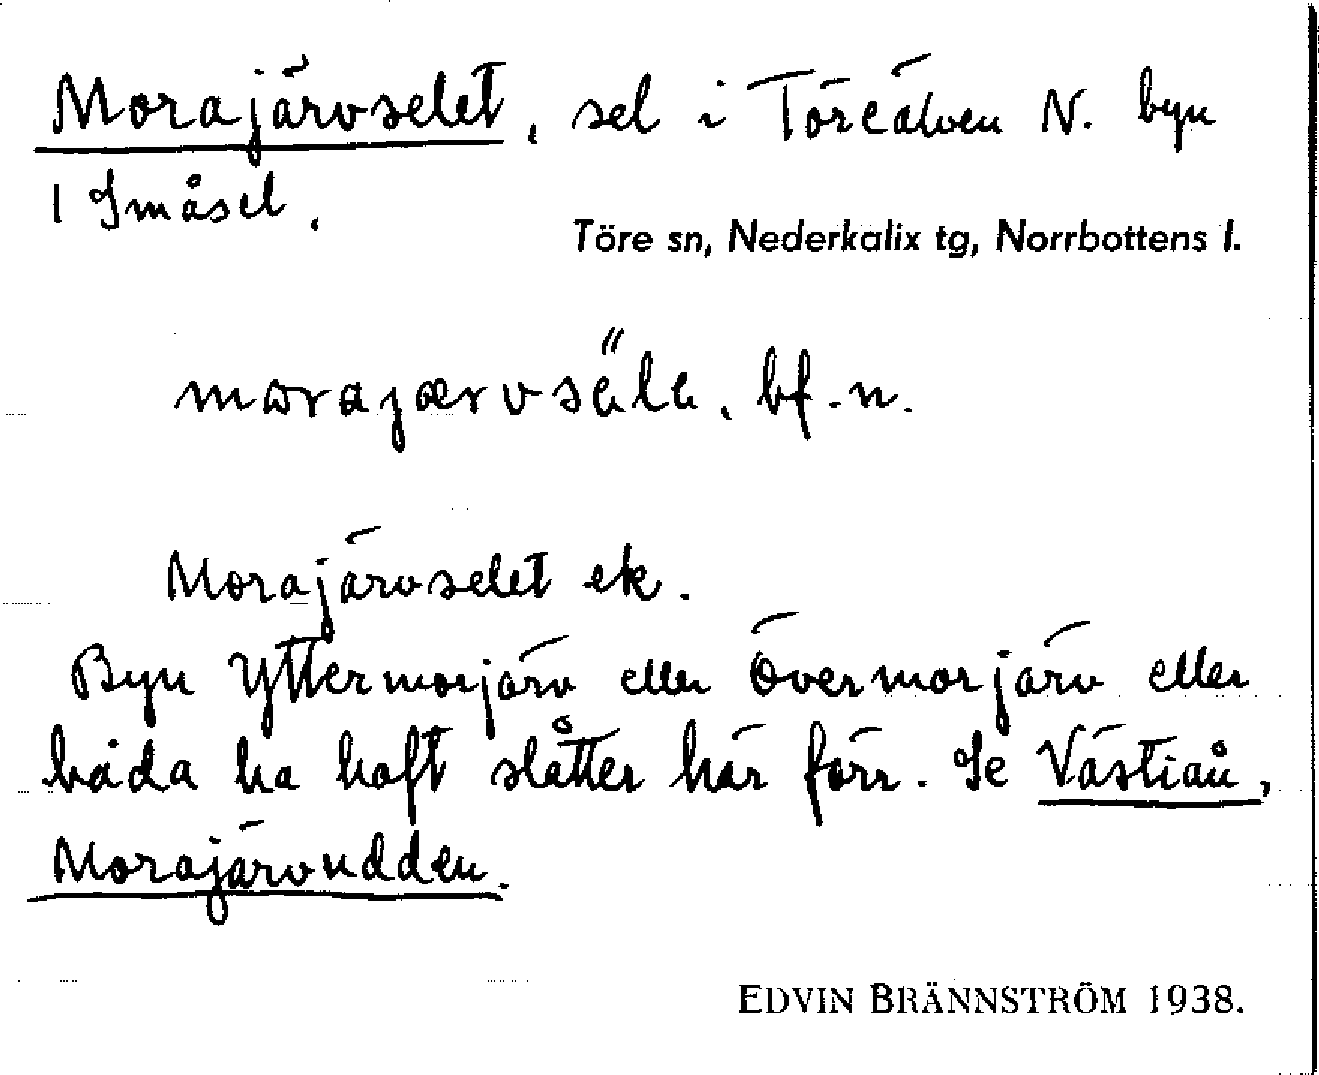 Morajärvselet, sel i Töreälven N. byn
1 Småsel.
Töre sn, Nederkalix tg, Norrbottens l.
bf. n.
Morajärvselet ek.
Byn Yttermorjärv eller Övermorjärv eller
båda ha haft slåtter här förr. Se Västiån,
Morajärvudden.
EDVIN BRÄNNSTRÖM 1938.